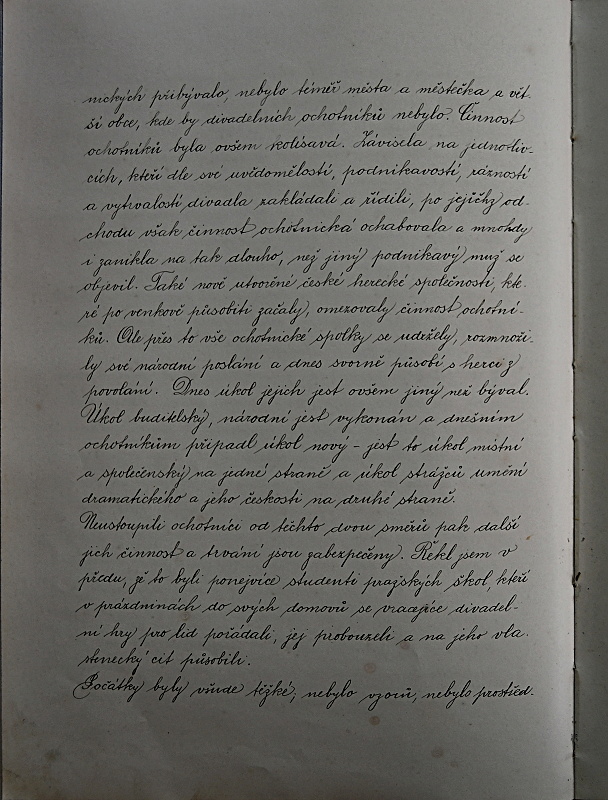 nických přibývalo, nebylo téměř města a městečka a vět-
ší obce, kde by divadelních ochotníků nebylo. Činnost
ochotníků byla ovšem kolísavá. Závisela na jednotliv-
cích, kteří dle své uvědomělosti, podnikavosti, ráznosti
a vytrvalosti divadla zakládali a řídili, po jejichž od-
chodu však činnost ochotnická ochabovala a mnohdy
i zanikla na tak dlouho, než jiný podnikavý muž se
objevil. Také nově utvořené české herecké společnosti, kte-
ré po venkově působiti začaly, omezovaly činnost ochotní-
ků. Ale přes to vše ochotnické spolky se udržely, rozmnoži-
ly své národní poslání a dnes svorně působí s herci z
povolání. Dnes úkol jejich jest ovšem jiný než býval.
Úkol buditelský, národní jest vykonán a dnešním
ochotníkům připadl úkol nový - jest to úkol místní
a společenský na jedné straně a úkol strážců umění
dramatického a jeho českosti na druhé straně.
Neustoupili ochotníci od těchto dvou směrů pak další
jich činnost a trvání jsou zabezpečeny. Řekl jsem v
předu, že to byli ponejvíce studenti pražských škol, kteří
v prázdninách do svých domovů se vracejíce divadel-
ní hry pro lid pořádali, jej probouzeli a na jeho vla-
stenecký cit působili.
Počátky byly všude těžké, nebylo vzorů, nebylo prostřed-